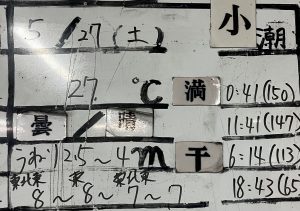 5/27(土) 小潮
27 ℃ 満 0:41(150)
曇/晴 11:41(147)
うねり2.5～4m 干 6:14(113)
東北東 東 東北東
8～8～7～7 18:43(65